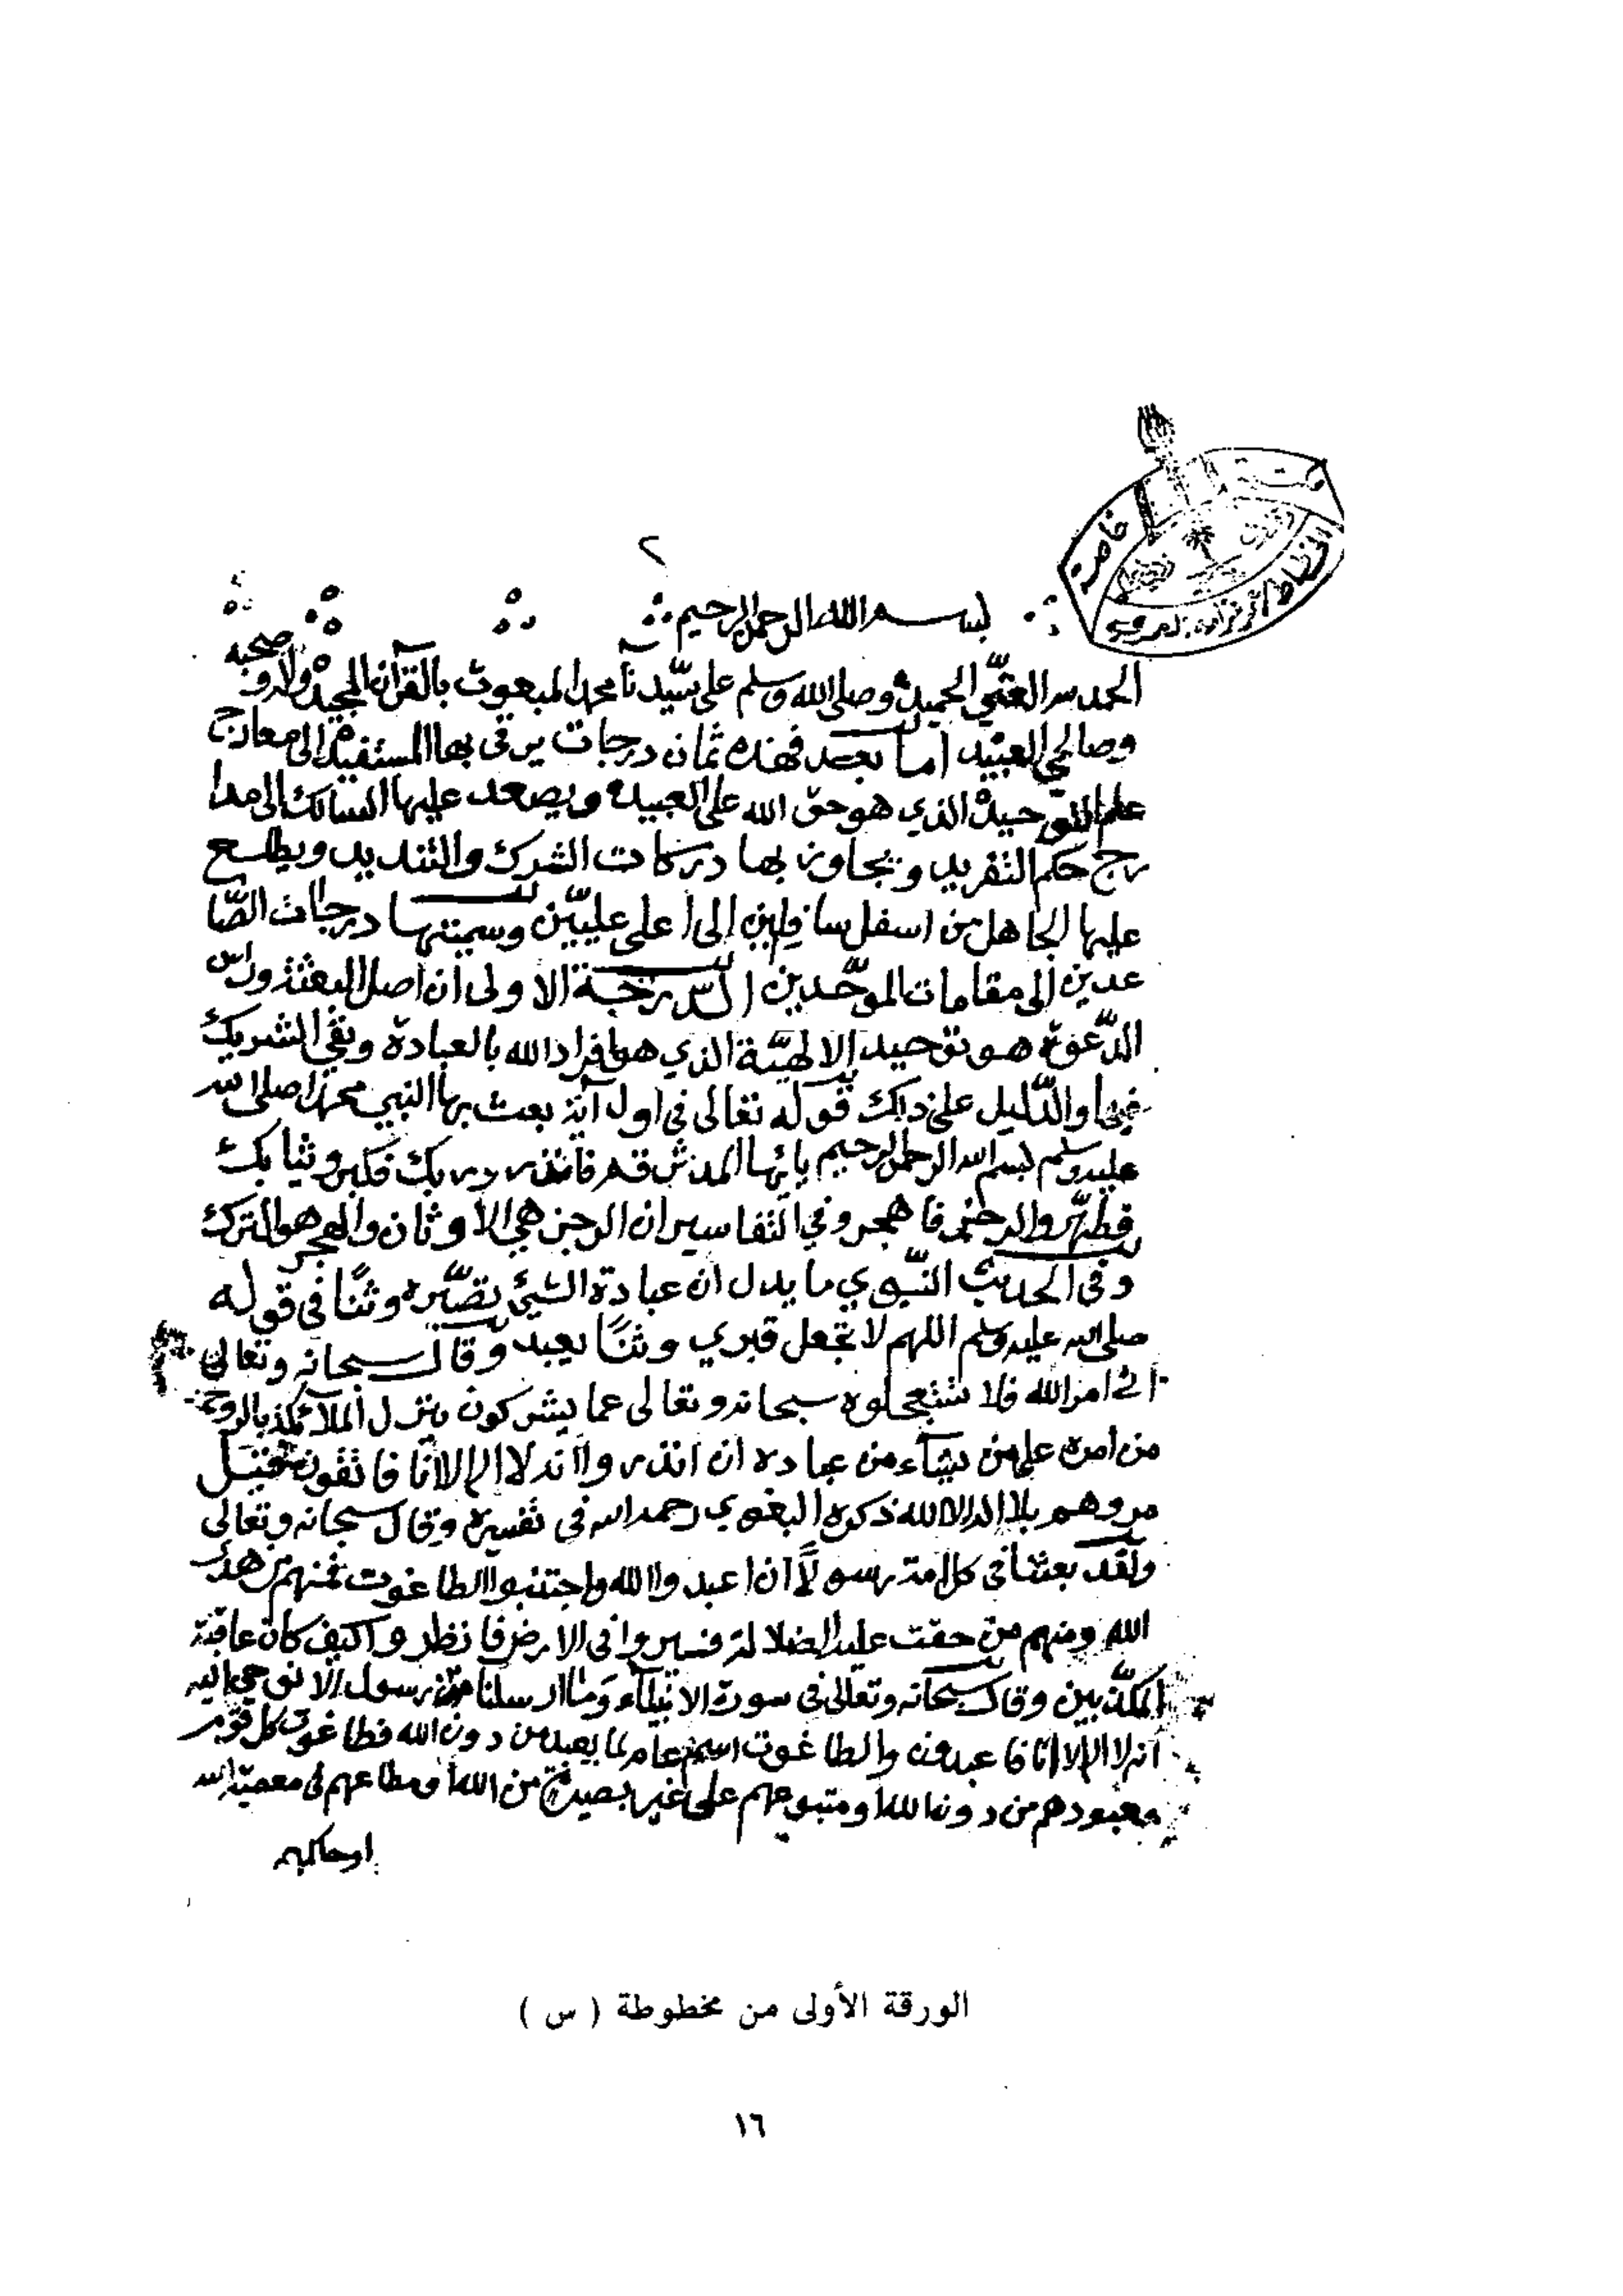 ٢
بسم الله الرحمن الرحيم
الحمد لله الغني الحميد وصلى الله وسلم على سيدنا محمد المبعوث بالقرآن المجيد وآله وصحبه
وصالحي العبيد اما بعد فهذه ثمان درجات يرقى بها المستفيد الى معارج
علم التوحيد الذي هو حق الله على العبيد ويصعد عليها السالك الى مدا
رج حكم التفريد ويجاوز بها دركات الشرك والتنديد ويطلع
عليها الجاهل من اسفل سافلين الى اعلى عليين وسميتها درجات الصا
عدين الى مقامات الموحدين الدرجة الاولى ان اصل البعثة وراس
الدعوة هو توحيد الالهية الذي هو افراد الله بالعبادة ونفي الشريك
فيها والدليل على ذلك قوله تعالى في اول آية بعث بها النبي محمد صلى الله
عليه وسلم بسم الله الرحمن الرحيم يا ايها المدثر قم فانذر وربك فكبر وثيابك
فطهر والرجز فاهجر وفي التفاسير ان الرجز هي الاوثان والهجر هو الترك
وفي الحديث النبوي ما يدل ان عبادة الشيئ تصيره وثنًا في قوله
صلى الله عليه وسلم اللهم لا تجعل قبري وثنًا يعبد وقال سبحانه وتعالى
اتى امر الله فلا تستعجلوه سبحانه وتعالى عما يشركون ينزل الملائكة بالروح
من امره على من يشاء من عباده ان انذروا انه لا اله الا انا فاتقون قيل
مروهم بلا اله الا الله ذكره البغوي رحمه الله في تفسيره وقال سبحانه وتعالى
ولقد بعثنا في كل امة رسولًا ان اعبدوا الله واجتنبوا الطاغوت فمنهم من هدى
الله ومنهم من حقت عليه الضلالة فسيروا في الارض فانظروا كيف كان عاقبة
المكذبين وقال سبحانه وتعالى في سورة الانبياء وما ارسلنا من رسول الا نوحي اليه
انه لا اله الا انا فاعبدون والطاغوت اسم عام لما يعبد من دون الله فطاغوت كل قوم
معبودهم من دون الله او متبوعهم على غير بصيرة من الله او مطاعهم في معصية الله
او حاكمهم
الورقة الأولى من مخطوطة ( س )
١٦